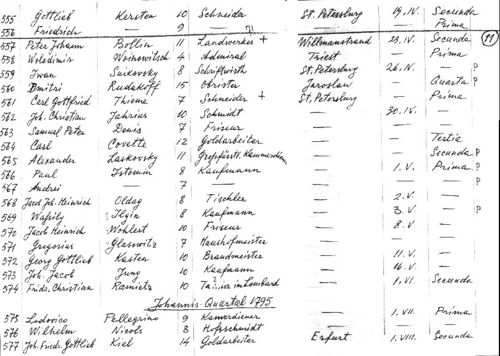 555 Gottlieb Kersten 10 Schneider St. Petersburg 19. IV. Secunda
556 Friedrich — 9 — — — Prima
557 Peter Johann Bollin 11 Landwerker + Willmanstrand 23. IV. Secunda ? 11
558 Wolodimir Woinowitsch 4 Admiral Triest — Prima
559 Iwan Surovsky 8 St. Petersburg 26. IV. — ?
560 Dmitri Rudakoff 15 Obrister Jaroslav — Quarta ?
561 Carl Gottfried Thieme 7 Schneider + St. Petersburg — Prima
562 Joh. Christian Jahrius 10 Schmidt — 30. IV. —
563 Samuel Peter Denis 7 Friseur — — —
564 Carl Covette 12 Goldarbeiter — — Tertia
565 Alexander Laskovsky 11 Großfürstl. Kammerdien — — Secunda ?
566 Paul Istomin 8 Kaufmann — 1. V. Prima ?
567 Andrei — 7 — — — — ?
568 Jacob Joh. Heinrich Oldag 8 Tischler — 2. V. —
569 Wassily Ilgin 8 Kaufmann — 3. V — ?
570 Jacob Heinrich Wohlert 10 Friseur — 8. V —
571 Gregorius 7 Haushofmeister — — —
572 Georg Gottlieb Kasten 10 Brandmeister — 11. V. —
573 Joh. Jacob Jung 10 Kaufmann — 16. V. —
574 Fridr. Christian Ramietz 10 im Lombard — 1. VI. Secunda
Johannis-Quartal 1795
575 Ludovico Pellegrino 9 Kamerdiener — 1. VII. Prima
576 Wilhelm Nicols 8 Hofschmidt — — —
577 Joh. Fridr. Gottlieb Kiel 14 Goldarbeiter Erfurt 1. VIII. Secunda